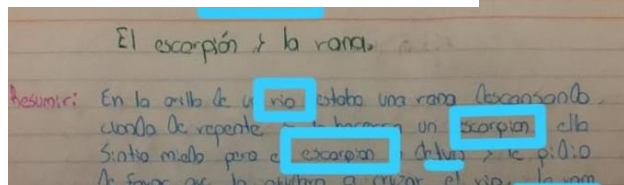 El escorpión y la rana.
Resumir: En la orilla de un rio estaba una rana descansando
cuando de repente un escorpion ella
Sintio miedo pero el escorpion y le pidio
de favor que la a cruzar el rio, la